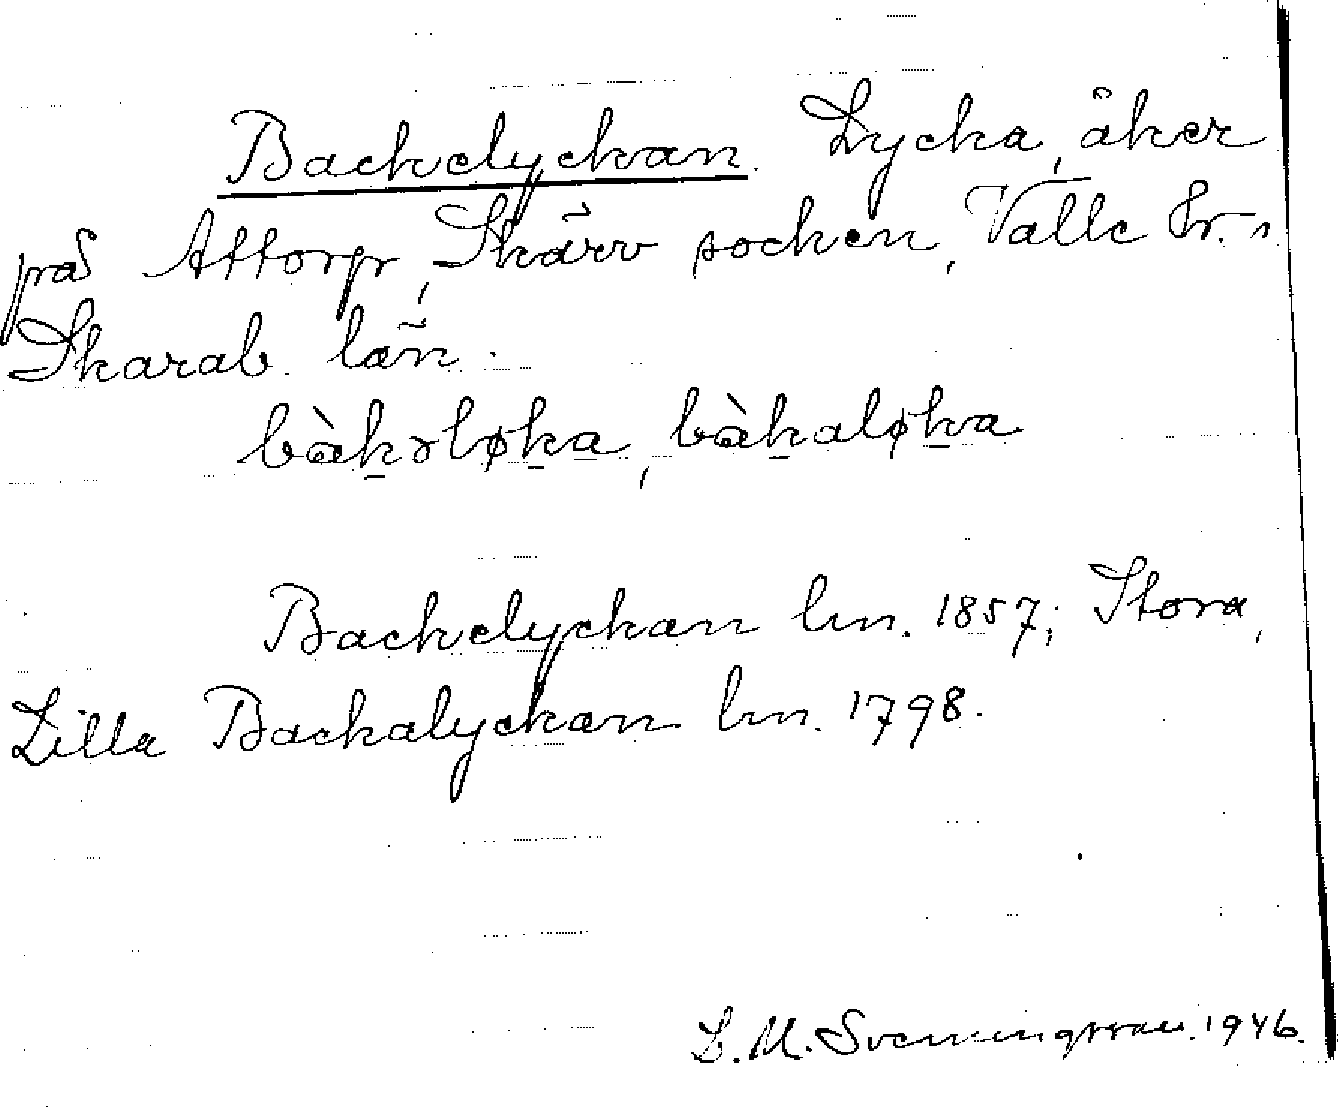 Backelyckan. Lycka, åker
på Attorp, Skärv socken, Valle hr. i
Skarab. län.
bàk̠əløk̠a, bàk̠aløk̠a
Backelyckan lm. 1857; Stora,
Lilla Backalyckan lm. 1798.
L. M. Svenungsson. 1946.